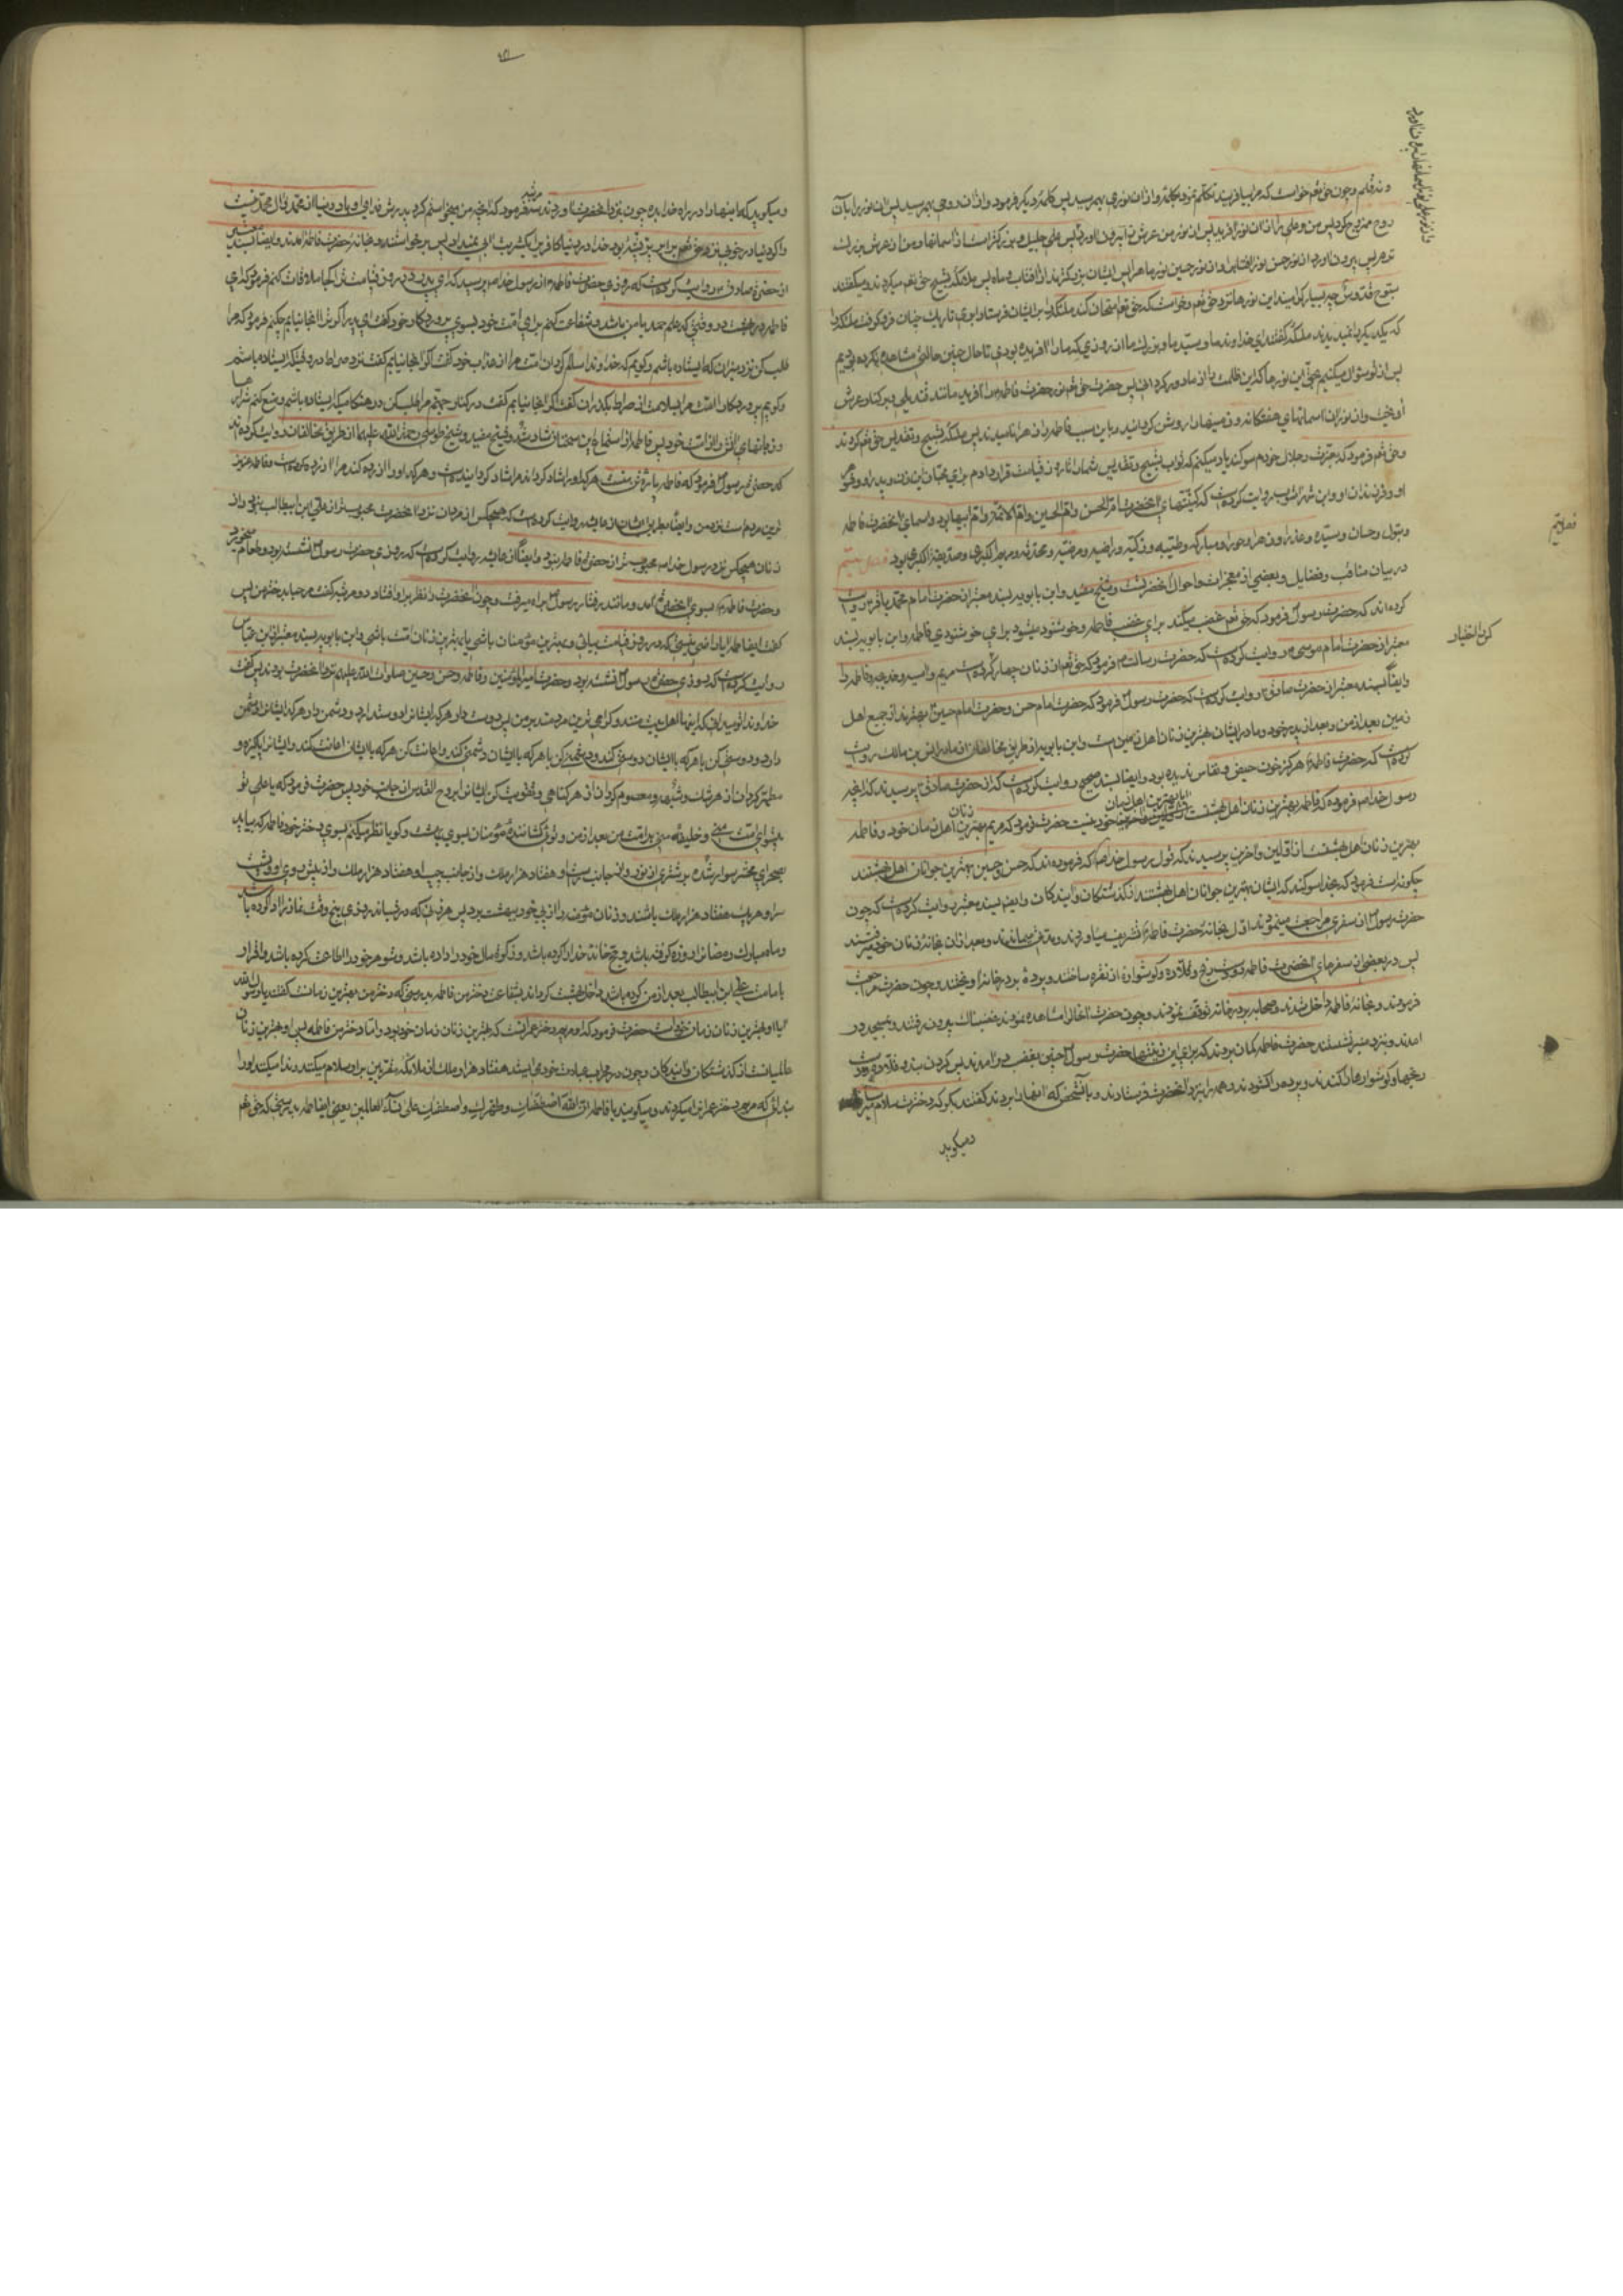 و نه قلم و چون حق تعم خواست که مرا بیافریند تکلم نمود بکلمه و از ان نوری بهم رسید پس کلمه دیکر فرمود و از ان روحی بهم رسید پس ان نور را بان
روح ممزوج کرد پس من و علی را از ان نور افرید پس از نور من عرش را بیرون اورد پس من جلیل و بزرکترم از اسمانها و من از عرش بزرکترم
بیرون اورد از نور حسن نور افتاب را و از نور حسین نور ماه را پس ایشان بزرکترند از افتاب و ماه پس ملائکه تسبیح حق تعم میکردند و میکفتند
سبوح قدوس چه بسیار کرامیند این نورها نزد حق تعم و خواست که حق تعم امتحان کند ملئکه را بر ایشان فرستاد ابری تاریک چنان فرو کرفت ملئکه را
که یکدیکر را نمیدیدند ملئکه کفتند ای خداوند ما و سید ما و بزرک ما از روزی که ما را افریده بودی تا حال چنین حالتی مشاهده نکرده بودیم
پس از تو سؤال میکنیم بحق این نورها که این ظلمت را از ما دور کردانی پس حضرت حق تعم نور حضرت فاطمه را افرید مانند قندیلی در کناره عرش
اویخت و از نور ان اسمانهای هفتکانه و زمینها را روشن کردانید و باین سبب فاطمه را زهرا نامیدند پس ملئکه تسبیح و تقدیس حق تعم کردند
و حق تعم فرمود که بعزت و جلال خودم سوکند یاد میکنم که ثواب تسبیح و تقدیس شما را تا روز قیامت قرار دادم برای محبان این زن و پدر او و شوهر
او و فرزندان او و ابن شهراشوب روایت کرده است که کنیتهای انحضرت ام الحسن و ام الحسین و ام الائمه و ام ابیها بود و اسمای انحضرت فاطمه
و بتول و حصان و سیده و عذرا و زهرا و حورا و مبارکه و طیبه و زکیه و راضیه و مرضیه و محدثه و مریم الکبری و صدیقة الکبری بود فصل
در بیان مناقب و فضایل و بعضی از معجزات و احوال انحضرت و شیخ مفید و ابن بابویه بسند معتبر از حضرت امام محمد باقر روایت
کرده اند که حضرت رسول فرمود که حق تعم غضب میکند برای غضب فاطمه و خوشنود میشود برای خوشنودی فاطمه و ابن بابویه بسند
معتبر از حضرت امام موسی روایت کرده است که حضرت رسالت فرمود که حق تعم از زنان چهار کزیده است مریم و اسیه و خدیجه و فاطمه را
و ایضا بسند معتبر از حضرت صادق روایت کرده است که حضرت رسول فرمود که حضرت امام حسن و حضرت امام حسین بهترند از جمیع اهل
زمین بعد از من و بعد از پدر خود و مادر ایشان بهترین زنان اهل زمین است و ابن بابویه از طریق مخالفان از مادر انس بن مالک روایت
کرده است که حضرت فاطمه هرکز خون حیض و نفاس ندیده بود و ایضا بسند صحیح روایت کرده است که از حضرت صادق پرسیدند که ایا چه
رسول خدا فرموده که فاطمه بهترین زنان اهل بهشت است ایا بهترین زنان اهل زمان خود نیست حضرت فرمود که مریم بهترین زنان اهل زمان خود و فاطمه
بهترین زنان اهل بهشت از اولین و اخرین پرسیدند که قول رسول خدا که فرموده اند که حسن و حسین بهترین جوانان اهل بهشتند
چکونه است فرمود که بخدا سوکند که ایشان بهترین جوانان اهل بهشتند از کذشتکان و ایندکان و ایضا بسند معتبر روایت کرده است که چون
حضرت رسول از سفری مراجعت مینمودند اول بخانه حضرت فاطمه تشریف میاوردند و مدتی میماندند و بعد از ان بخانه زنان خود میرفتند
پس در بعضی از سفرهای انحضرت فاطمه دو دست رنج و قلاده و کوشواره از نقره ساختند و پرده بر در خانه اویختند و چون حضرت مراجعت
فرمودند و بخانه فاطمه داخل شدند و صحابه بر در خانه توقف نمودند و چون حضرت انحال را مشاهده نمودند غضبناک بیرون رفتند و بمسجد در
امدند و بنزد منبر نشستند حضرت فاطمه کمان بردند که برای این زینتها حضرت رسول چنین بغضب در امدند پس کردن بند و قلاده و دست
رنجها و کوشوارها را کندند و پرده را کشودند و همه را بنزد انحضرت فرستادند و بانشخص که انها را برد کفتند بکو که دخترت سلام میرساند
و میکوید
فصل هشتم
کن التجار
و میکوید که اینها را در راه خدا بده چون بنزد انحضرت اوردند سه مرتبه فرمود که انچه من میخواستم کرد پدرش فدای او باد دنیا از محمد و ال محمد نیست
و اکر دنیا در خوبی نزد حق تعم برابر پر پشه بود خدا در دنیا کافر را یک شربت اب نمیداد پس برخواستند و بخانه حضرت فاطمه امدند و ایضا بسند معتبر
از حضرت صادق روایت کرده است که روزی حضرت فاطمه از رسول خدا پرسید که ای پدر در روز قیامت ترا کجا ملاقات کنم فرمود که ای
فاطمه در بهشت در وقتی که علم حمد با من باشد و شفاعت کنم برای امت خود بسوی پروردکار خود کفت ای پدر اکر ترا انجا نیابم چکنم فرمود که مرا
طلب کن نزد میزان که ایستاده باشم و کویم که خداوندا سالم کردان امت مرا از عذاب خود کفت اکر انجا نیابم کفت نزد صراط در وقتیکه ایستاده باشم
و کویم پروردکارا امت مرا بسلامت از صراط بکذران کفت اکر انجا نیابم کفت در کنار جهنم مرا طلب کن در هنکامیکه ایستاده باشم و منع کنم شرار
و زبانهای اتش را از امت خود پس فاطمه از استماع این سخنان شاد شد و شیخ مفید و شیخ طوسی رحمة الله علیهما از طریق مخالفان روایت کرده اند
که حضرت رسول فرمود که فاطمه پاره تن منست هرکه او را شاد کرداند مرا شاد کردانیده است و هرکه او را ازرده کند مرا ازرده کرده است و فاطمه عزیز
ترین مردم است نزد من و ایضا بطریق ایشان از عایشه روایت کرده است که هیچکس از مردان نزد انحضرت محبوب تر از علی ابن ابیطالب نبود و از
زنان هیچکس نزد رسول خدا محبوب تر از حضرت فاطمه نبود و ایضا از عایشه روایت کرده است که روزی حضرت رسول نشسته بود و طعام میخورد
و حضرت فاطمه بسوی انحضرت امد و مانند رفتار رسول راه میرفت و چون انحضرت را نظر بر او افتاد دو مرتبه کفت مرحبا بدختر من پس
کفت ای فاطمه ایا راضی نیستی که در روز قیامت بیائی و بهترین مؤمنان باشی یا بهترین زنان امت باشی و ابن بابویه بسند معتبر از ابن عباس
روایت کرده است که روزی حضرت رسول نشسته بود و حضرت امیرالمؤمنین و فاطمه و حسن و حسین صلوات الله علیهم نزد انحضرت بودند پس کفت
خداوندا تو میدانی که اینها اهل بیت منند و کرامی ترین مردمند بر من پس دوست دار هرکه ایشانرا دوست دارد و دشمن دار هرکه ایشانرا دشمن
دارد و دوستی کن با هرکه با ایشان دوستی کند و دشمنی کن با هرکه با ایشان دشمنی کند و اعانت کن هرکه با ایشان اعانت کند و ایشانرا پاکیزه و
مطهر کردان از هر شک و شبهه و معصوم کردان از هر کناهی و تقویت کن ایشانرا بروح القدس از جانب خود پس حضرت فرمود که یا علی تو
پیشوای امت منی و خلیفه منی بر امت من بعد از من و توئی کشاننده مؤمنان بسوی بهشت و کویا نظر میکنم بسوی دختر خود فاطمه که بیاید
بصحرای محشر سوار شده بر شتری از نور و از جانب راست او هفتاد هزار ملک و از جانب چپ او هفتاد هزار ملک و از پیش روی او و پشت
سر او هریک هفتاد هزار ملک باشند و زنان مؤمنه را از پی خود ببهشت برد پس هر زنی که در شبانه روزی پنج وقت نماز را ادا کرده باشد
و ماه مبارک رمضانرا روزه کرفته باشد و حج خانه خدا را کرده باشد و زکوة مال خود را داده باشد و شوهر خود را اطاعت کرده باشد و اقرار
بامامت علی ابن ابیطالب بعد از من کرده باشد داخل بهشت کرداند بشفاعت دختر من فاطمه بدرستی که دختر من بهترین زنانست کفتند یا رسول الله
ایا او بهترین زنان زمان خود است حضرت فرمود که او مریم دختر عمرانست که بهترین زنان زمان خود بود و اما دختر من فاطمه پس او بهترین زنان
عالمیانست از کذشتکان و ایندکان و چون در محراب عبادت خود می ایستد هفتاد هزار ملک از ملائکه مقربین بر او سلام میکنند و ندا میکنند او را
بندائی که مریم دختر عمران را میکردند و میکویند یا فاطمة ان الله اصطفاک و طهرک و اصطفاک علی نساء العالمین یعنی ای فاطمه بدرستی که حق تعم